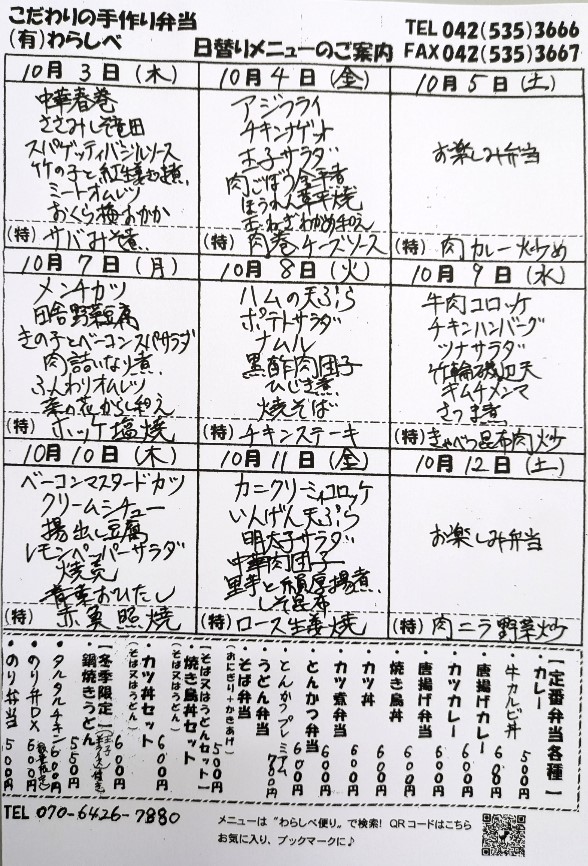 こだわりの手作り弁当
(有)わらしべ
日替りメニューのご案内
TEL 042(535)3666
FAX 042(535)3667
10月 3 日 (木)
中華春巻
ささみしそ竜田
スパゲッティバジルソース
竹の子と紅生姜むし煮
ミートオムレツ
おくら梅おかか
(特) サバみそ煮
10月 4 日 (金)
アジフライ
チキンナゲット
玉子サラダ
肉ごぼう全平煮
ほうれん草平焼
玉ねぎわかめ和え
(特) 肉巻チーズソース
10月 5 日 (土)
お楽しみ弁当
(特) 肉カレー炒め
10月 7 日 (月)
メンチカツ
田舎野菜豆腐
きの子とベーコンスパサラダ
肉詰いなり煮
ふんわりオムレツ
菜の花からし和え
(特) ホッケ塩焼
10月 8 日 (火)
ハムの天ぷら
ポテトサラダ
ナムル
黒酢肉団子
ひじき煮
焼そば
(特) チキンステーキ
10月 9 日 (水)
牛肉コロッケ
チキンハンバーグ
ツナサラダ
竹輪磯辺天
キムチメンマ
さつま煮
(特) きゃべつ昆布肉炒
10月 10 日 (木)
ベーコンマスタードカツ
クリームシチュー
揚出し豆腐
レモンペッパーサラダ
焼売
青菜おひたし
(特) 赤魚照焼
10月 11 日 (金)
カニクリーミィコロッケ
いんげん天ぷら
明太子サラダ
中華肉団子
里芋と絹厚揚煮
しそ昆布
(特) ロース生姜焼
10月 12 日 (土)
お楽しみ弁当
(特) 肉ニラ野菜炒
【定番弁当各種】
・カレー 500円
・牛カルビ丼
・唐揚げカレー 680円
・カツカレー 600円
・唐揚げ弁当 600円
・焼き鳥丼 600円
・カツ丼 600円
・カツ煮弁当 600円
・とんかつ弁当 600円
・とんかつプレミアム 700円
・うどん弁当
・そば弁当 500円
(おにぎり+かきあげ)
【そば又はうどんセット】
・焼き鳥丼セット
(そば又はうどん)
・カツ丼セット 600円
(そば又はうどん)
【冬季限定】
・鍋焼きうどん 600円
・タルタルチキン 550円
・のり弁DX 600円
・のり弁当 500円
TEL 070-6426-7880
メニューは"わらしべ便り"で検索! QRコードはこちら
お気に入り、ブックマークに♪